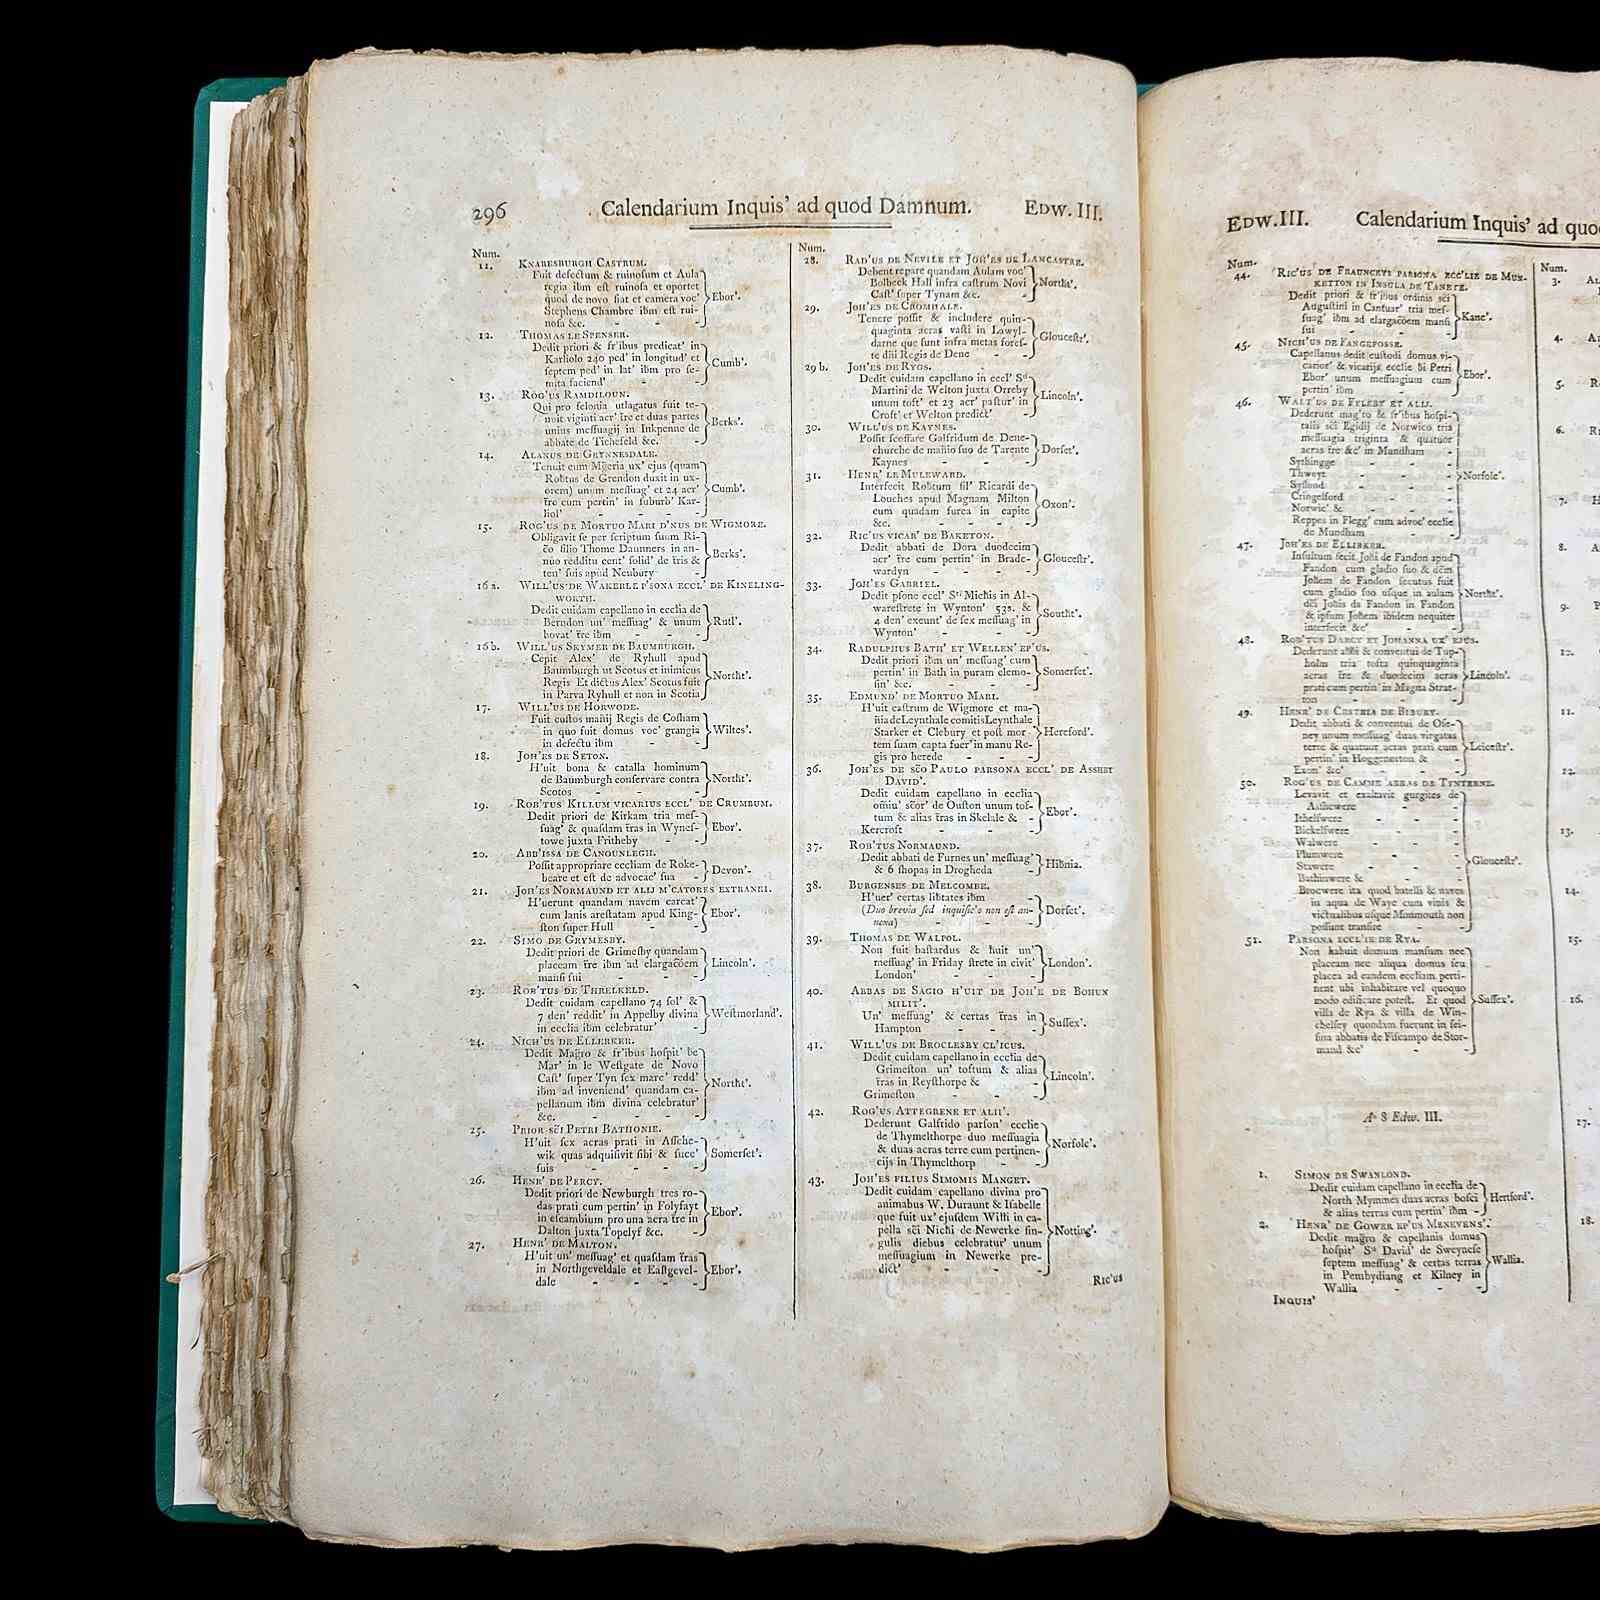 296 Calendarium Inquis' ad quod Damnum. EDW. III.
Num.
11. KNARESBURGH CASTRUM.
Fuit defectum & ruinosum et Aula
regia ibm est ruinosa et oportet
quod de novo fiat et camera voc'
Stephens Chambre ibm est rui-
nosa &c. - - Ebor'.
12. THOMAS LE SPENSER.
Dedit priori & fr'ibus predicat' in
Karliolo 240 ped' in longitud' et
septem ped' in lat' ibm pro se-
mita faciend' - - Cumb'.
13. ROG'US RAMDILOUN.
Qui pro felonia utlagatus fuit te-
nuit viginti acr' t̄re et duas partes
unius messuagij in Inkpenne de
abbate de Tichefeld &c. - Berks'.
14. ALANUS DE GRYNNESDALE.
Tenuit cum Mȝeria ux' ejus (quam
Rob̄tus de Grendon duxit in ux-
orem) unum messuag' et 24 acr'
t̄re cum pertin' in suburb' Kar-
liol' - - - - Cumb'.
15. ROG'US DE MORTUO MARI D'NUS DE WIGMORE.
Obligavit se per scriptum suum Ri-
c̄o filio Thome Daunners in an-
nuo redditu cent' solid' de t̄ris &
ten' suis apud Neubury - Berks'.
16 a. WILL'US DE WAKERLE P'SONA ECCL' DE KINELING-
WORTH.
Dedit cuidam capellano in ecclia de
Berndon un' messuag' & unum
bovat' t̄re ibm - - - Rutl'.
16 b. WILL'US SKYMER DE BAUMBURGH.
Cepit Alex' de Ryhull apud
Baumburgh ut Scotus et inimicus
Regis Et dictus Alex' Scotus fuit
in Parva Ryhull et non in Scotia Northt'.
17. WILL'US DE HORWODE.
Fuit custos manij Regis de Cosham
in quo fuit domus voc' grangia
in defectu ibm - - Wiltes'.
18. JOH'ES DE SETON.
H'uit bona & catalla hominum
de Baumburgh conservare contra
Scotos - - - - Northt'.
19. ROB'TUS KILLUM VICARIUS ECCL' DE CRUMBUM.
Dedit priori de Kirkam tria mes-
suag' & quasdam t̄ras in Wynes-
towe juxta Fritheby - - Ebor'.
20. ABB'ISSA DE CANOUNLEGH.
Possit appropriare eccliam de Roke-
beare et est de advocac' sua - Devon'.
21. JOH'ES NORMAUND ET ALIJ M'CATORES EXTRANEI.
H'uerunt quandam navem carcat'
cum lanis arestatam apud King-
ston super Hull - - Ebor'.
22. SIMO DE GRYMESBY.
Dedit priori de Grimesby quandam
placeam t̄re ibm ad elargac̄oem
mansi sui - - - Lincoln'.
23. ROB'TUS DE THRELKELD.
Dedit cuidam capellano 74 sol' &
7 den' reddit' in Appelby divina
in ecclia ibm celebratur' - Westmorland'.
24. NICH'US DE ELLERKER.
Dedit Magr̄o & fr'ibus hospit' be'
Mar' in le Westgate de Novo
Cast' super Tyn sex marc' redd'
ibm ad inveniend' quandam ca-
pellanum ibm divina celebratur'
&c. - - - - Northt'.
25. PRIOR SC̄I PETRI BATHONIE.
H'uit sex acras prati in Assche-
wik quas adquisivit sibi & succ'
suis - - - - Somerset'.
26. HENR' DE PERCY.
Dedit priori de Newburgh tres ro-
das prati cum pertin' in Folyfayt
in escambium pro una acra t̄re in
Dalton juxta Topelyf &c. - Ebor'.
27. HENR' DE MALTON.
H'uit un' messuag' et quasdam t̄ras
in Northgeveldale et Eastgevel-
dale - - - - Ebor'.
Num.
28. RAD'US DE NEVILE ET JOH'ES DE LANCASTRE.
Debent repare quandam Aulam voc'
Bolbeck Hall infra castrum Novi
Cast' super Tynam &c. - Northt'.
29. JOH'ES DE CROMHALE.
Tenere possit & includere quin-
quaginta acras vasti in Lawyl-
darne que sunt infra metas fores-
te dn̄i Regis de Dene - - Gloucestr'.
29 b. JOH'ES DE RYGS.
Dedit cuidam capellano in eccl' Sti
Martini de Welton juxta Orreby
unum toft' et 23 acr' pastur' in
Croft' et Welton predict' - Lincoln'.
30. WILL'US DE KAYNES.
Possit feoffare Galfridum de Dene-
churche de man̄io suo de Tarente
Kaynes - - - - Dorset'.
31. HENR' LE MULEWARD.
Interfecit Rob̄tum fil' Ricardi de
Louches apud Magnam Milton
cum quadam furca in capite
&c. - - - - Oxon'.
32. RIC'US VICAR' DE BAKETON.
Dedit abbati de Dora duodecim
acr' t̄re cum pertin' in Brade-
wardyn - - - - Gloucestr'.
33. JOH'ES GABRIEL.
Dedit p̄sone eccl' Sti Mich̄is in Al-
warestrete in Wynton' 53s. &
4 den' exeunt' de sex messuag' in
Wynton' - - - Southt'.
34. RADULPHUS BATH' ET WELLEN' EP'US.
Dedit priori ibm un' messuag' cum
pertin' in Bath in puram elemo-
sin' &c. - - - Somerset'.
35. EDMUND' DE MORTUO MARI.
H'uit castrum de Wigmore et ma-
n̄ia de Leynthale comitis Leynthale
Starker et Clebury et post mor
tem suam capta fuer' in manu Re-
gis pro herede - - - Hereford'.
36. JOH'ES DE SC̄O PAULO PARSONA ECCL' DE ASSHBT
DAVID'.
Dedit cuidam capellano in ecclia
om̄iu' sc̄or' de Ouston unum tof-
tum & alias t̄ras in Skelale & -
Kercroft - - - - Ebor'.
37. ROB'TUS NORMAUND.
Dedit abbati de Furnes un' messuag'
& 6 shopas in Drogheda - Hib̄nia.
38. BURGENSES DE MELCOMBE.
H'uer' certas lib̄tates ibm -
(Duo brevia sed inquisic'o non est an-
nexa) - - - Dorset'.
39. THOMAS DE WALPOL.
Non fuit bastardus & huit un'
messuag' in Friday strete in civit'
London' - - - - London'.
40. ABBAS DE SAGIO H'UIT DE JOH'E DE BOHUN
MILIT'.
Un' messuag' & certas t̄ras in
Hampton - - - Sussex'.
41. WILL'US DE BROCLESBY CL'ICUS.
Dedit cuidam capellano in ecclia de
Grimeston un' toftum & alias
t̄ras in Reysthorpe & -
Grimeston - - - Lincoln'.
42. ROG'US ATTEGRENE ET ALII'.
Dederunt Galfrido parson' ecclie
de Thymelthorpe duo messuagia
& duas acras terre cum pertinen-
cijs in Thymelthorp - - Norfolc'.
43. JOH'ES FILIUS SIMOMIS MANGET.
Dedit cuidam capellano divina pro
animabus W. Duraunt & Isabelle
que fuit ux' ejusdem Willi in ca-
pella sc̄i Nichi de Newerke sin-
gulis diebus celebratur' unum
messuagium in Newerke pre-
dict' - - - - Notting'.
RIC'US
EDW.III. Calendarium Inquis' ad quo
Num.
44. RIC'US DE FRAUNCEYS PARSONA ECC'LIE DE MUN-
KETTON IN INSULA DE TANETE.
Dedit priori & fr'ibus ordinis sc̄i
Augustini in Cantuar' tria mes-
suag' ibm ad elargac̄oem mansi
sui - - - - Kanc'.
45. NICH'US DE FANGEFOSSE.
Capellanus dedit custodi domus vi-
carior' & vicarijs ecclie b̄i Petri
Ebor' unum messuagium cum
pertin' ibm - - - Ebor'.
46. WALT'US DE FELEBY ET ALIJ.
Dederunt mag'ro & fr'ibus hospi-
talis sc̄i Egidij de Norwico tria
messuagia triginta & quatuor
acras t̄re &c' in Mundham -
Sythingge - - - -
Thweyt - - - -
Syslond - - - -
Cringelford - - -
Norwic' & - - -
Reppes in Flegg' cum advoc' ecclie
de Mundham - - Norfolc'.
47. JOH'ES DE ELLERKER.
Insultum fecit Joh̄i de Fandon apud
Fandon cum gladio suo & dc̄m
Joh̄em de Fandon secutus fuit
cum gladio suo usque in aulam
dc̄i Joh̄is da Fandon in Fandon
& ipsum Joh̄em ibidem nequiter
interfecit &c' - - Northt'.
48. ROB'TUS DARCY ET JOHANNA UX' EJUS.
Dederunt abb̄i & conventui de Tup-
holm tria tofta quinquaginta
acras t̄re & duodecim acras
prati cum pertin' in Magna Strat-
ton - - - - Lincoln'.
49. HENR' DE CESTRIA DE BIBURY.
Dedit abbati & conventui de Ose-
ney unum messuag' duas virgatas
terre & quatuor acras prati cum
pertin' in Hoggeneston & -
Exon' &c' - - - Leicestr'.
50. ROG'US DE CAMME ABBAS DE TYNTERNE.
Levavit et exaltavit gurgites de
Asshewere - - -
Ithelswere - - -
Bickelswere - - -
Walwere - - -
Plumwere - - -
Stawere - - -
Bathinwere & - -
Brocwere ita quod batelli & naves
in aqua de Waye cum vinis &
victualibus usque Monmouth non
possunt transire - - Gloucestr'.
51. PARSONA ECCL'IE DE RYA.
Non habuit domum mansum nec
placeam nec aliqua domus seu
placea ad eandem eccliam perti-
nent ubi inhabitare vel quoquo
modo edificare potest. Et quod
villa de Rya & villa de Win-
chelsey quondam fuerunt in sei-
sina abbatis de Fiscampo de Stor-
mand &c' - - - Sussex'.
Ao 8 Edw. III.
1. SIMON DE SWANLOND.
Dedit cuidam capellano in ecclia de
North Mymmes duas acras bosci
& alias terras cum pertin' ibm - Hertford'.
2. HENR' DE GOWER EP'US MENEVENS'.
Dedit magr̄o & capellanis domus
hospit' Sti David' de Sweynese
septem messuag' & certas terras
in Pembydiang et Kilney in
Wallia - - - - Wallia.
INQUIS'
Num.
3. AL
4.
5. R
6. R
7. H
8. A
9. P
10.
11.
12.
13.
14.
15.
16.
17.
18.